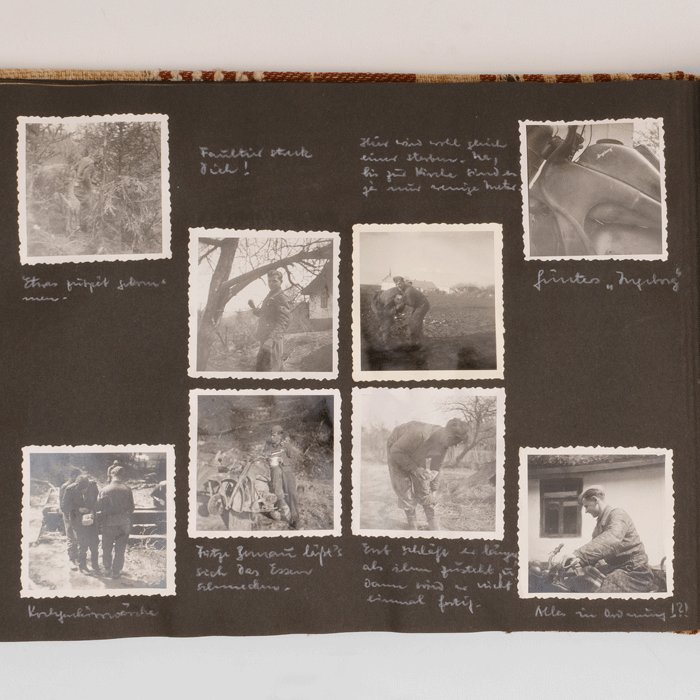 Faultier streck
Dich!
Hier wird wohl gleich
einer sterben. Na,
bis zur Kirche sind es
ja nur wenige Meter
Etwas zu spät gekom-
men.
Fürstes „Ingeborg"
Kochgeschirrwäsche
läßt's
sich das Essen
schmecken.
Erst schläft er länger
als ihm zusteht u.
dann wird er nicht
einmal fertig.
Alles in Ordnung!?!